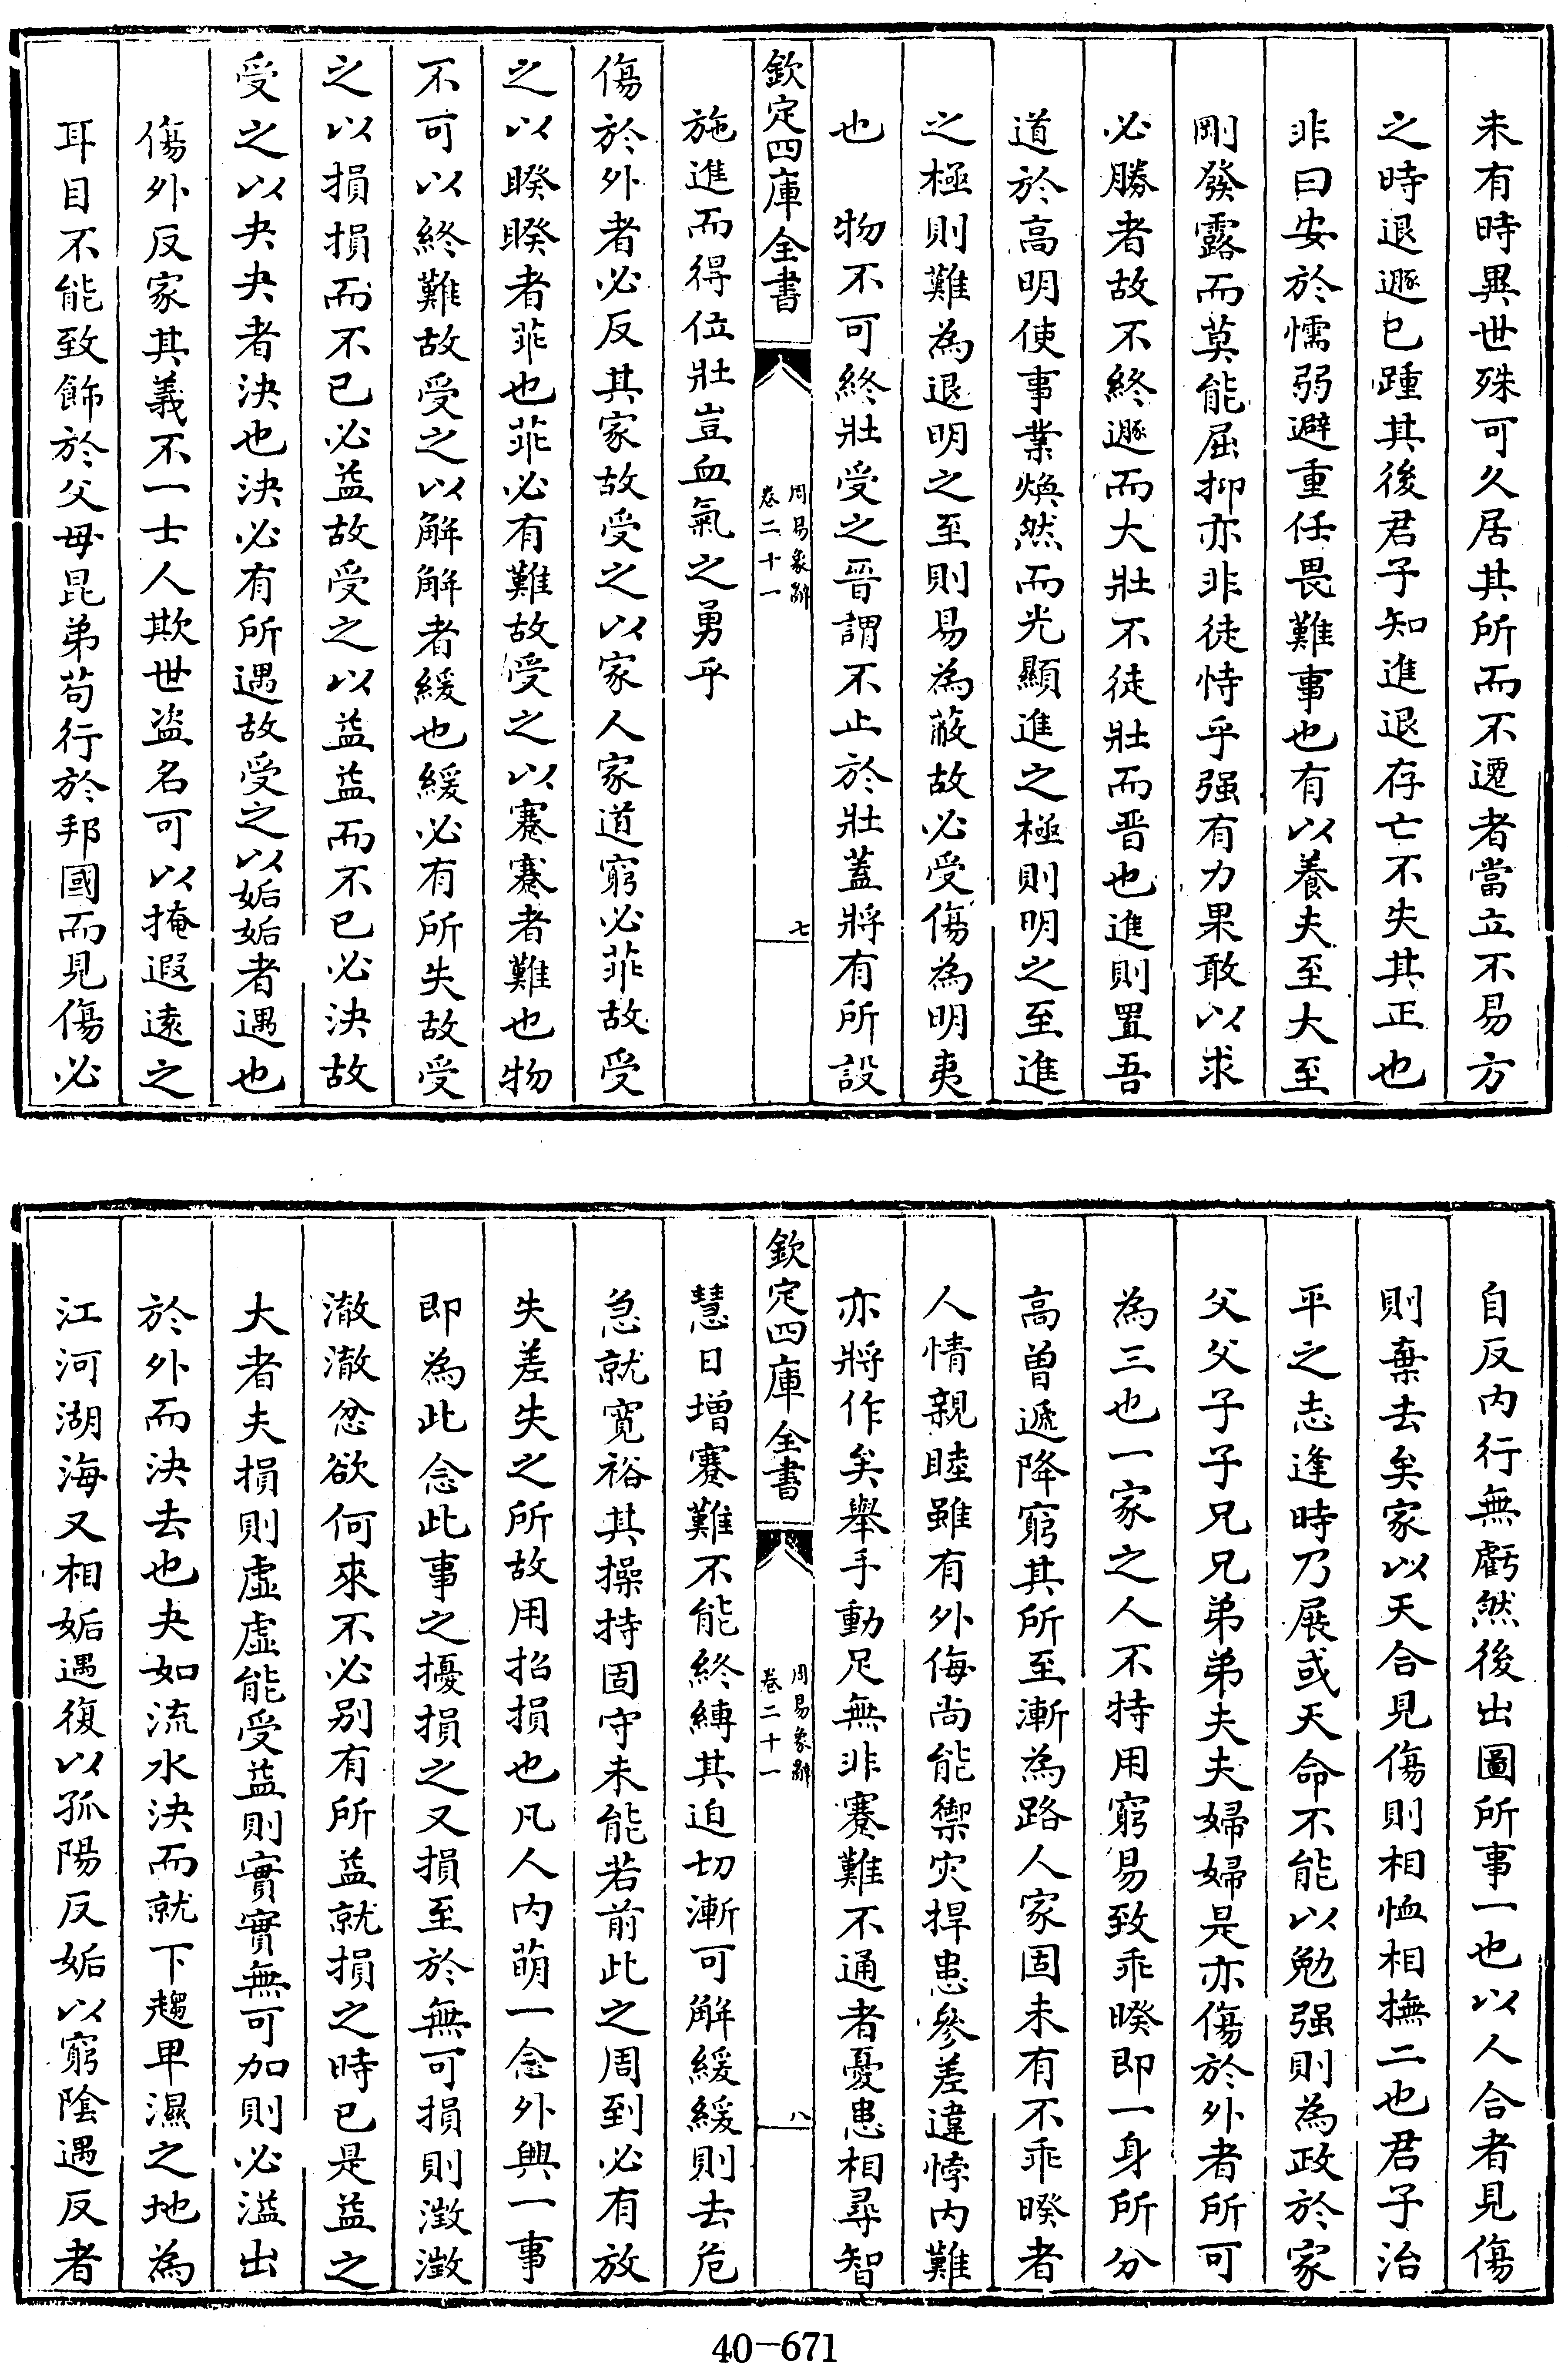 未有時異世殊可久居其所而不遷者當立不易方
之時退遯已踵其後君子知進退存亡不失其正也
非曰安於懦弱避重任畏難事也有以養夫至大至
剛發露而莫能屈抑亦非徒恃乎强有力果敢以求
必勝者故不終遯而大壯不徒壯而晋也進則置吾
道於高明使事業煥然而光顯進之極則明之至進
之極則難為退明之至則易為蔽故必受傷為明夷
也　物不可終壯受之晉謂不止於壯蓋將有所設
欽定四庫全書
周易象辭
卷二十一
七
施進而得位壯豈血氣之勇乎
傷於外者必反其家故受之以家人家道窮必乖故受
之以睽睽者乖也乖必有難故受之以蹇蹇者難也物
不可以終難故受之以解解者緩也緩必有所失故受
之以損損而不已必益故受之以益益而不已必決故
受之以夬夬者決也決必有所遇故受之以姤姤者遇也
傷外反家其義不一士人欺世盜名可以掩遐遠之
耳目不能致飾於父母昆弟苟行於邦國而見傷必
自反內行無虧然後出圖所事一也以人合者見傷
則棄去矣家以天合見傷則相恤相撫二也君子治
平之志逢時乃展或天命不能以勉强則為政於家
父父子子兄兄弟弟夫夫婦婦是亦傷於外者所可
為三也一家之人不特用窮易致乖睽即一身所分
高曾遞降窮其所至漸為路人家固未有不乖睽者
人情親睦雖有外侮尚能禦灾捍患參差違悖內難
亦將作矣舉手動足無非蹇難不通者憂患相尋智
欽定四庫全書
周易象辭
卷二十一
八
慧日增蹇難不能終縛其迫切漸可解緩緩則去危
急就寬裕其操持固守未能若前此之周到必有放
失差失之所故用招損也凡人內萌一念外興一事
即為此念此事之擾損之又損至於無可損則澂澂
澈澈忿欲何來不必别有所益就損之時已是益之
大者夫損則虛虛能受益則實實無可加則必溢出
於外而決去也夬如流水決而就下趨卑濕之地為
江河湖海又相姤遇復以孤陽反姤以窮陰遇反者
40-671